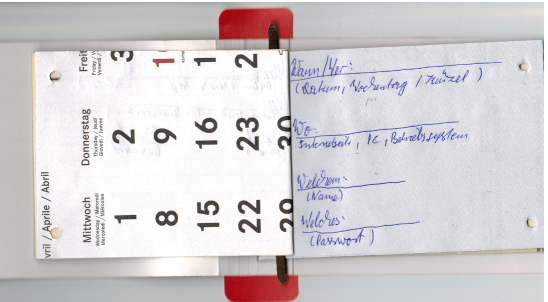 vril / Aprile / Abril
Mittwoch
Wednesday / Mercredi
Mercoledì / Miércoles
1
8
15
22
29
Donnerstag
Thursday / Jeudi
Giovedì / Jueves
2
9
16
23
30
Freit
Friday / V
Venerdì /
3
1
1
2
Wann / Wer:
(Datum, Wochentag / Kürzel)
Wo:
Internetseite, PC, Betriebssystem
Welchem:
(Name)
Welches:
(Passwort)